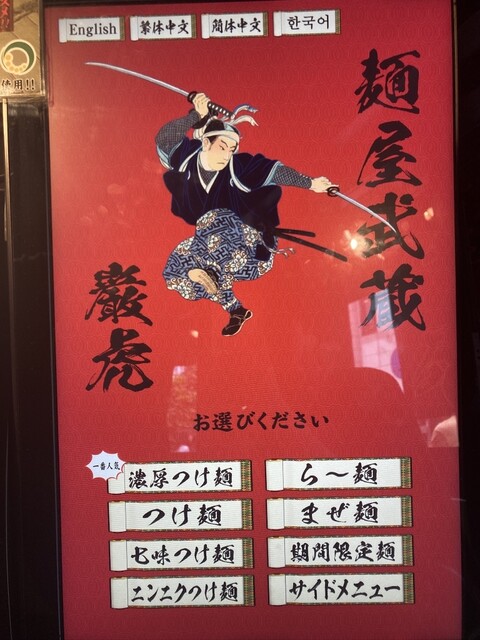 English
繁体中文
簡体中文
한국어
使用!!
麺屋武蔵
巖虎
お選びください
一番人気
濃厚つけ麺
ら〜麺
つけ麺
まぜ麺
七味つけ麺
期間限定麺
ニンニクつけ麺
サイドメニュー